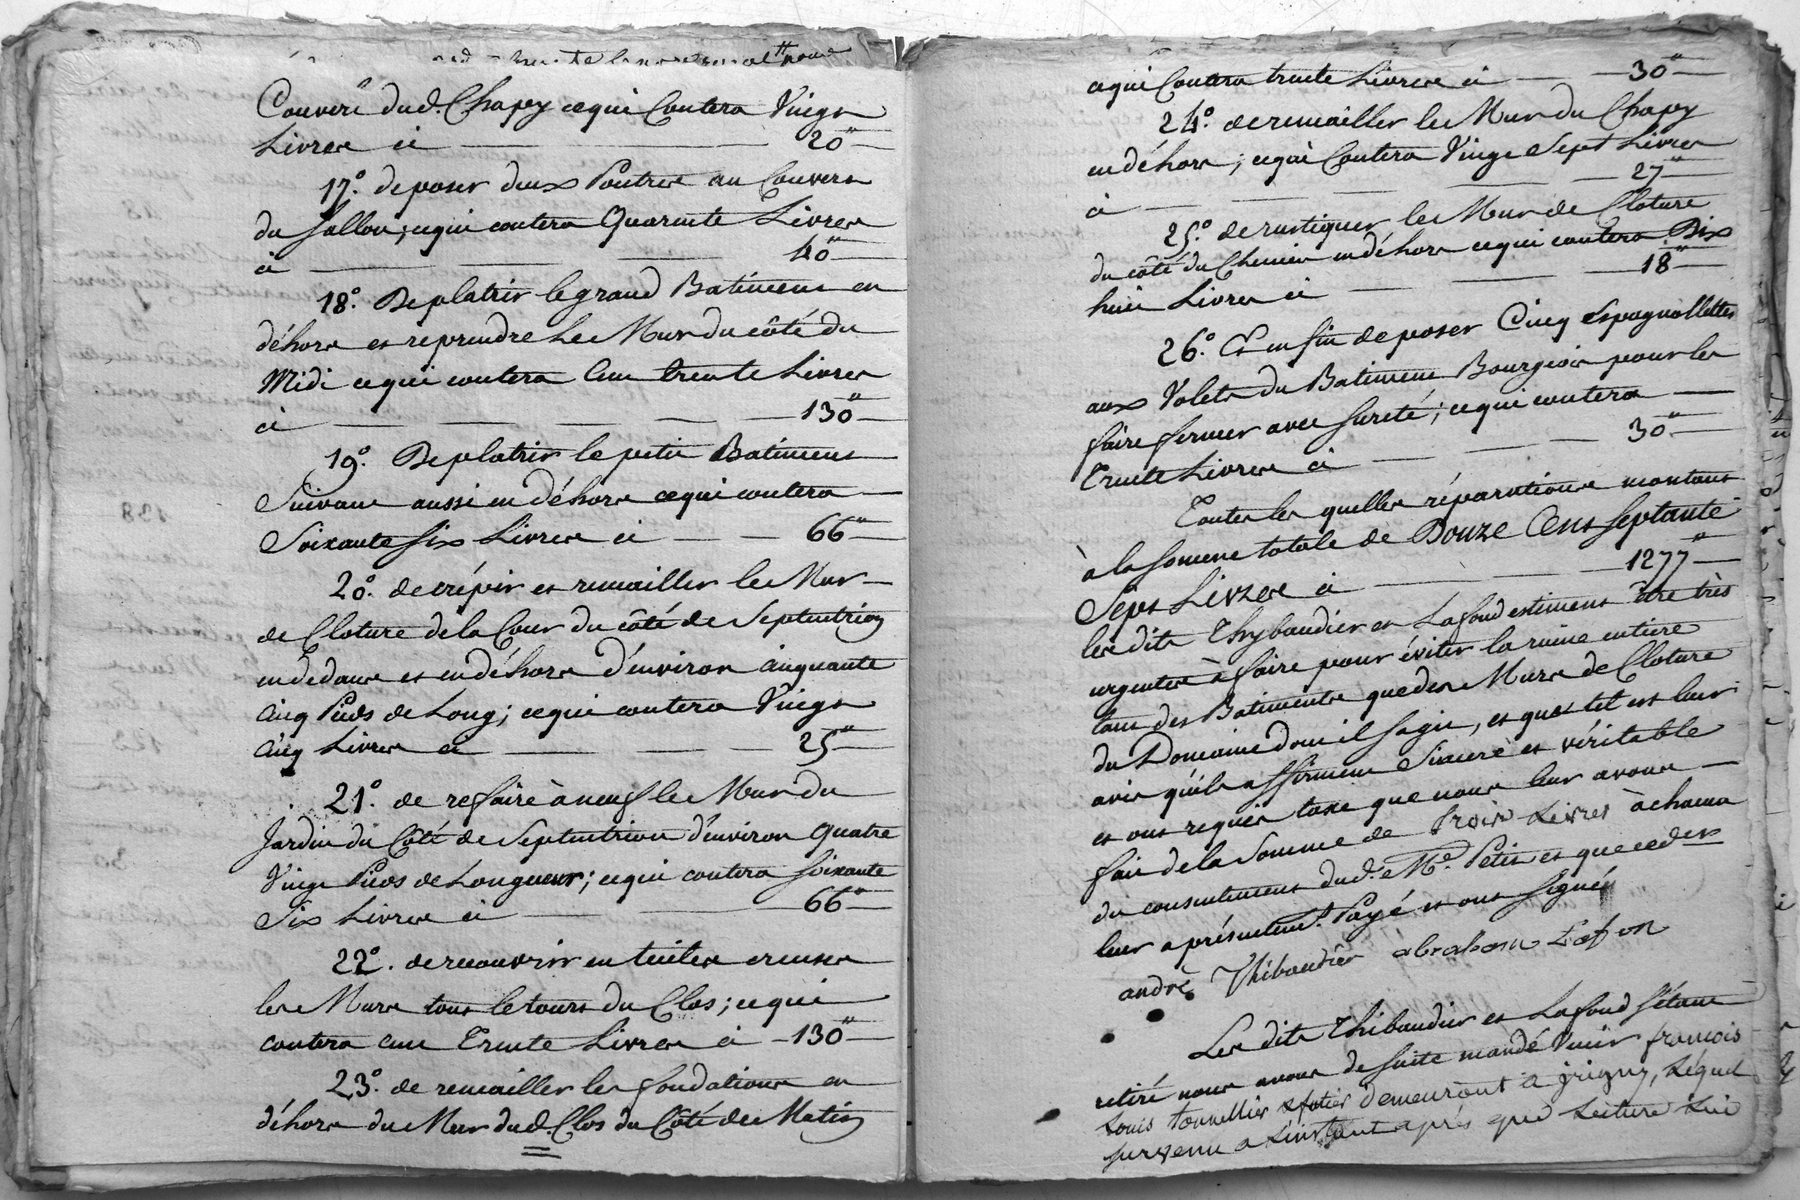 Couvert dud. Chapy cequi Coutera Vingt
Livres ci 20"
17.° de poser deux Poutres au Couvert
du Sallon; cequi coutera Quarente Livres
ci 40"
18.° De platrir le grand Batiment en
déhors et reprendre les Mur du côté du
Midi cequi coutera Cent trente Livres
ci 130"
19.° De platrir le petit Batiment
Suivant aussi en déhors cequi coutera
Soixante Six Livres ci 66"
20.° de crépir et remailler les Mur
de Cloture de la Cour du côté de Septentrion
en dedans et en déhors d'environ cinquante
cinq Pieds de Long; cequi coutera Vingt
cinq Livres ci 25"
21.° de refaire à neuf les Mur du
Jardin du Côté de Septentrion d'environ quatre
Vingt Pieds de Longueur; cequi coutera Soixante
Six Livres ci 66"
22.° de recouvrir en tuiles creuses
les Murs tous le tours du Clos; cequi
coutera cent Trente Livres ci 130"
23.° de remailler les fondations en
déhors du Mur dud. Clos du Côté de Matin
cequi Coutera trente Livres ci 30"
24.° de remailler les Mur du Chapy
en déhors; cequi Coutera Vingt Sept Livres
ci 27"
25.° de rustiquer les Mur de Cloture
du côté du Chemin en déhors cequi coutera Dix
huit Livres ci 18"
26.° Et enfin de poser Cinq Espagnollettes
aux Volets du Batiment Bourgeois pour les
faire fermer avec Sureté; cequi coutera
Trente Livres ci 30"
Toutes les quelles réparations montant
à la Somme totale de Douze Cent Septante
Sept Livres ci 1277"
les dits Thybaudier et Lafond estiment être très
urgentes à faire pour éviter la ruine entiere
tant des Batiments que des Murs de Cloture
du Domaine dont il Sagit, et que tel est leur
avis qu'ils affirment Sincere et véritable
et ont requis taxe que nous leur avons
fait de la Somme de trois Livres à chacun
du consentement dud. M.e Petit et que ced.
leur a présentem.t Payé et ont Signés
andré Thibaudier abraham Lafon
Les dits Thibaudier et Lafond S'étant
retiré nous avons de Suite mandé Venir françois
Louis tonnellier demeurant à grigny, Lequel
survenu a Linstant après que Lecture Lui